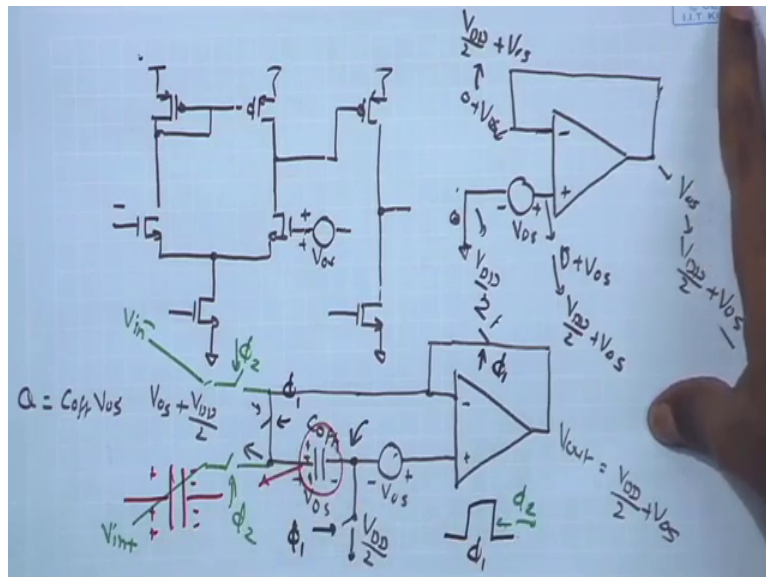 I.I.T. K
V_DD/2 + V_OS
0 + V_OS
-
+
- +
V_OS
V_OS
V_DD/2 + V_OS
0
V_DD/2
0 + V_OS
V_DD/2 + V_OS
-
+
+
V_OS
Vin-
ϕ2
ϕ1
ϕ1
Q = Coff Vos
Vos + V_DD/2
Coff
+ -
Vos
- +
Vos
-
+
Vout = V_DD/2 + Vos
ϕ2
Vin+
+ -
ϕ1
V_DD/2
ϕ1
ϕ2